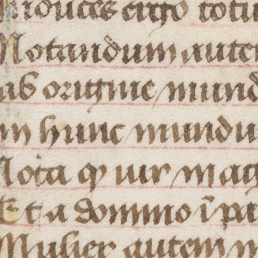 ergo totu
Notandum autem
ab origine mund
in hunc mundu
Nota qꝫ uir mag
Et a domino ī pa
Mulier autem m